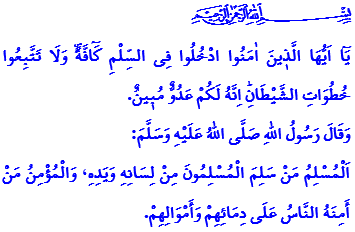 بِسْمِ اللهِ الرَّحْمٰنِ الرَّحِيمِ
يَٓا اَيُّهَا الَّذ۪ينَ اٰمَنُوا ادْخُلُوا فِى السِّلْمِ كَٓافَّةًۖ وَلَا تَتَّبِعُوا
خُطُوَاتِ الشَّيْطَانِۜ اِنَّهُ لَكُمْ عَدُوٌّ مُب۪ينٌ.
وَقَالَ رَسُولُ اللهِ صَلَّى اللهُ عَلَيْهِ وَسَلَّمَ:
اَلْمُسْلِمُ مَنْ سَلِمَ الْمُسْلِمُونَ مِنْ لِسَانِهِ وَيَدِهِ، وَالْمُؤْمِنُ مَنْ
أَمِنَهُ النَّاسُ عَلَى دِمَائِهِمْ وَأَمْوَالِهِمْ.